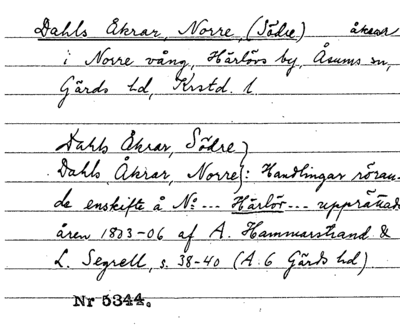 Dahls Åkrar, Norre, (Södre) åkrar
i Norre vång, Härlövs by, Åsums sn,
Gärds hd, Krstd. l.
Dahls Åkrar, Södre }
Dahls Åkrar, Norre }: Handlingar röran-
de enskifte å No --- Härlöv --- upprättade
åren 1803-06 af A. Hammarstrand &
L. Segrell, s. 38-40 (A. 6 Gärds hd)
Nr 5344.